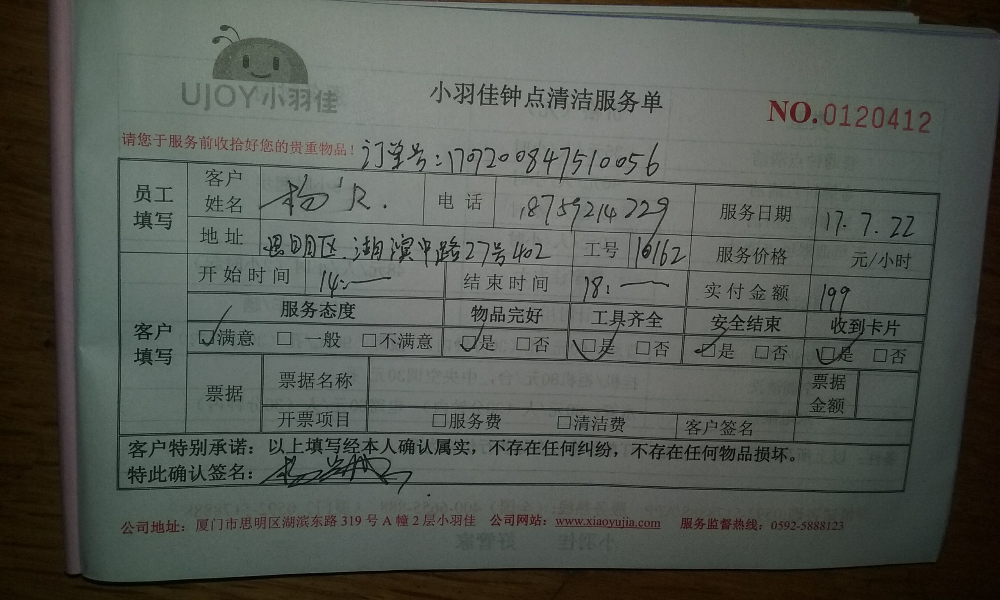 UJOY小羽佳
小羽佳钟点清洁服务单
NO.0120412
请您于服务前收拾好您的贵重物品！
订单号：1707200847510056
员工填写 客户姓名 杨 电话 18759214229 服务日期 17.7.22
地址 思明区.湖滨中路27号402 工号 10162 服务价格 元/小时
客户填写 开始时间 14:— 结束时间 18:— 实付金额 199
服务态度 物品完好 工具齐全 安全结束 收到卡片
☑满意 □一般 □不满意 ☑是 □否 ☑是 □否 ☑是 □否 ☑是 □否
票据 票据名称 票据金额
开票项目 □服务费 □清洁费 客户签名
客户特别承诺：以上填写经本人确认属实，不存在任何纠纷，不存在任何物品损坏。
特此确认签名：
公司地址：厦门市思明区湖滨东路319号A幢2层小羽佳 公司网站：www.xiaoyujia.com 服务监督热线：0592-5888123